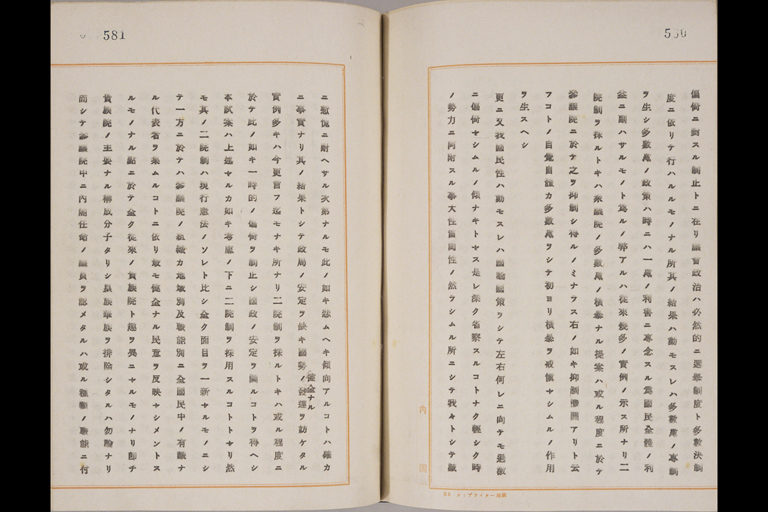 580
偏倚ニ對スル制止トニ在リ議會政治ハ必然的ニ選擧制度ト多數決制
度ニ依リテ行ハルルモノナル所其ノ結果ハ動モスレハ多數黨ノ專制
ヲ生シ多數黨ノ政策ハ時ニハ一黨ノ利害ニ專念スル爲國民全體ノ利
益ニ副ハサルモノト爲ルノ弊アルハ從來幾多ノ實例ノ示ス所ナリ二
院制ヲ採ルトキハ衆議院ノ多數黨ノ橫暴ナル提案ハ或ル程度ニ於テ
參議院ニ於テ之ヲ抑制シ得ルノミナラス右ノ如キ抑制機關アリト云
フコトノ自覺自體カ多數黨ヲシテ初ヨリ橫暴ヲ敬愼セシムルノ作用
ヲ生スヘシ
更ニ又我國民性ハ動モスレハ國勢國策ヲシテ左右何レニ向テモ過激
ニ偏倚セシムルノ傾ナキトセス是レ深ク省察スルコトナク輕シク時
ノ勢力ニ阿附スル事大性雷同性ノ然ラシムル所ニシテ我々トシテ誠
内閣
581
ニ遺憾ニ耐ヘサル次第ナルモ此ノ如キ悲ムヘキ傾向アルコトハ確カ
ニ事實ナリ其ノ結果トシテ政局ノ安定ヲ缺キ國勢ノ健全ナル發達ヲ妨ケタル
實例多キハ今更言フ迄モナキ所ナリ二院制ヲ採ルトキハ或ル程度ニ
於テ此ノ如キ一時的ノ偏倚ヲ制止シ國政ノ安定ヲ圖ルコトヲ得ヘシ
本試案ハ上述セルカ如キ考慮ノ下ニ二院制ヲ採用スルコトトセリ然
モ其ノ二院制ハ現行憲法ノソレト比シ全ク面目ヲ一新セルモノニシ
テ一方ニ於テハ參議院ノ組織カ地域別及職能別ニ全國民中ノ有識ナ
ル代表者ヲ集ムルコトニ依リ最モ健全ナル民意ヲ反映セシメントス
ルモノナル點ニ於テ全ク從來ノ貴族院ト趣ヲ異ニセルモノナリ卽チ
貴族院ノ主要ナル構成分子タリシ皇族華族ヲ排除シタルハ勿論ナリ
而シテ參議院中ニ內閣任命ノ議員ヲ認メタルハ或ル種類ノ職能ニ付